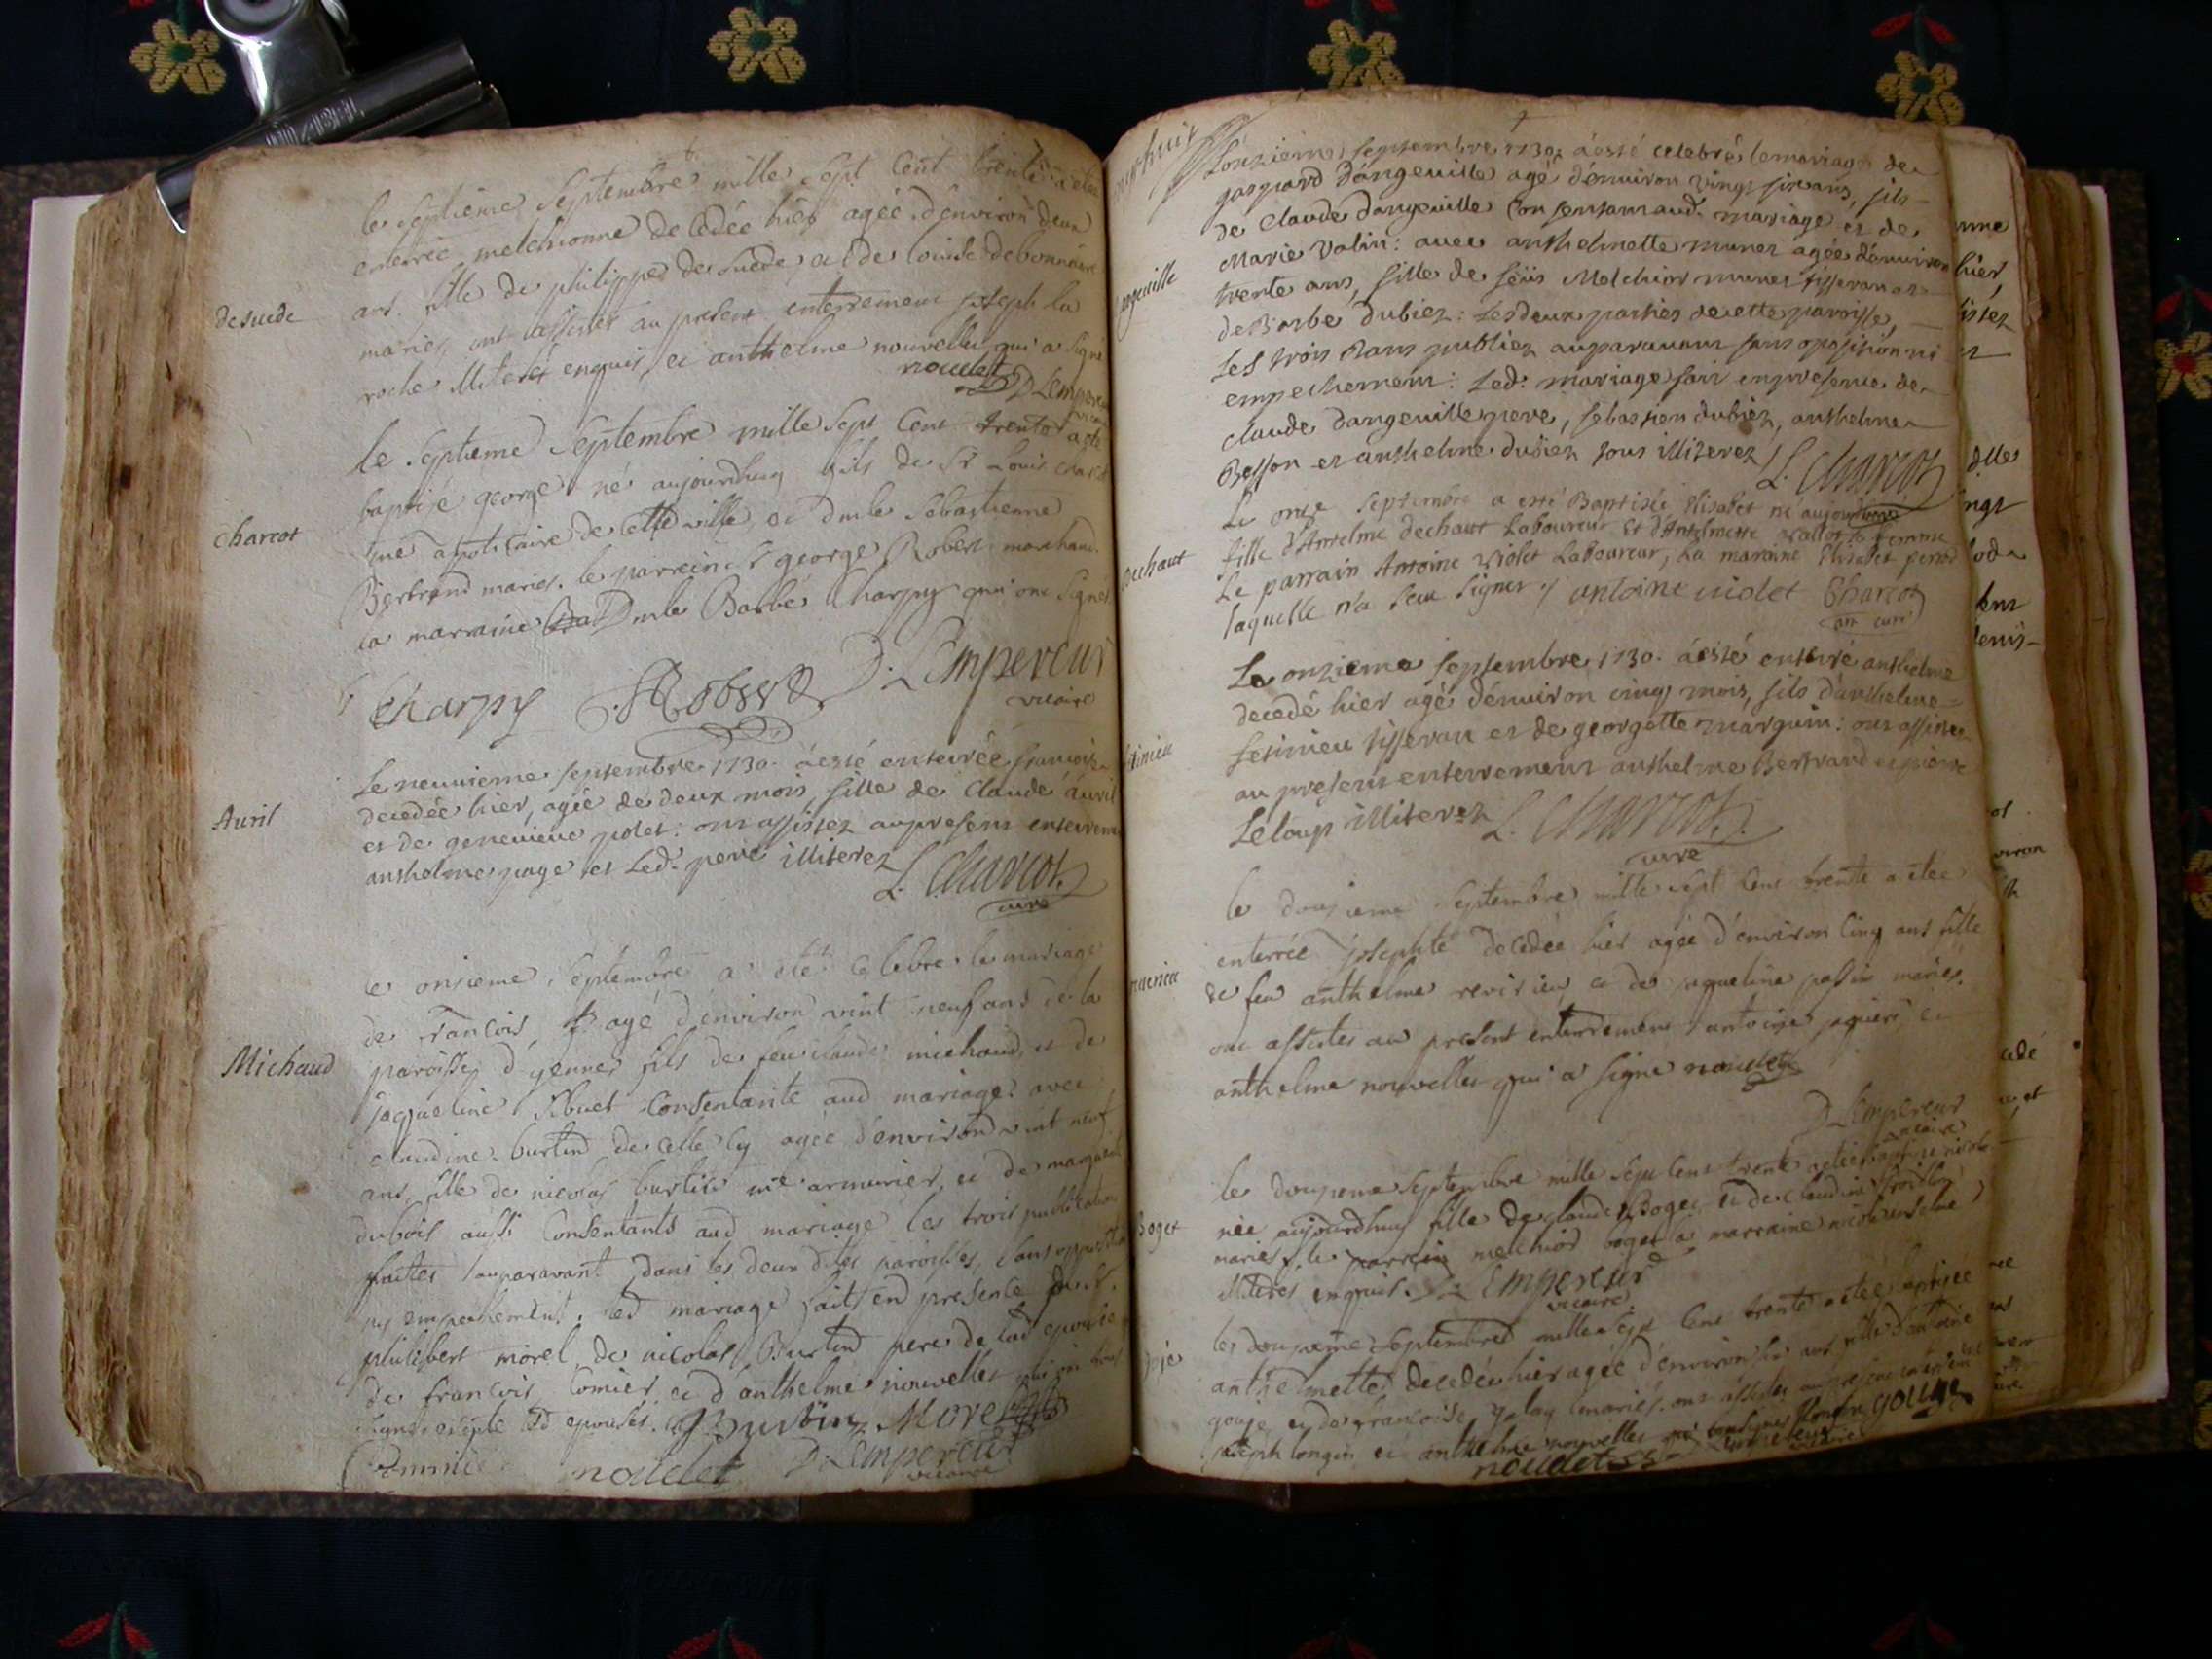 le septieme Septembre mille sept Cent trente a eté
enterrée melchionne decedée hier agée d'environ deux
desuede
ans. fille de philippe de suede et de louise debonnaire
mariés, ont assistés au present enterrement joseph la
roche illiteré enquis, et anthelme nouvellet qui a signé
nouvelet D Lempereur
vicaire
le septieme Septembre mille sept Cent trente a eté
baptisé george né aujourdhuy fils de Sr Louis charcot
charcot
me apoticaire de cette ville, et dmlle Sebastienne
Bertrand mariés. le parrein Sr george Robert marchand.
la marraine Dmlle Barbe Charpy qui ont signés
Charpy Robert D. Lempereur
vicaire
Le neuvieme septembre 1730. á esté enterrée francoise
decedée hier, agée de deux mois, fille de Claude auril
Auril
et de genevieve polet: ont assistez au present enterremt
anthelme page et Led. pere illiterez L. Charcot
curé
le onzieme Septembre a eté celebré le mariage
de francois agé d'environ vint neuf ans de la
Michaud
paroisse d'yenne, fils de feu claude michaud, et de
jaqueline consentante aud mariage: avec
claudine burtin de celle cy agée d'environ vint neuf
ans, fille de nicolas burtin me armurier, et de marguerite
dubois aussi Consentants aud mariage les trois publications
faites auparavant dans les deux dites paroisses, sans opposition
ny empechement. led mariage fait en presence de Sr.
philibert morel, de nicolas Burtin pere de lad epouse
de francois Comier, et d'anthelme nouvellet qui ont tous
signés excepté led epouses. Burtin Morel
nouvelet D. Lempereur
vicaire
Lonzieme septembre 1730. á esté celebré le mariage de
gaspard dángeuille agé dénuiron vingt six ans, fils
de Claude dangeuille Consentant aud. mariage et de
Marie Valin: auec anthelmette munet agée dénuiron
angeuille
trente ans, fille de feüs Melchior munet tisseran et
de Barbe Dubiez: Les deux parties de cette paroisse,
Les trois bans publiez auparauant sans oposition ni
empechement: Led. mariage fait en presence de
claude dangeuille pere, sebastien dubiez, anthelme
Besson et anthelme dubiez tous illiterez L. Charcot
Le onze Septembre a esté Baptisée Elisabet né aujourdhui
fille d'Antelme dechaut Laboureur Et d'Antelmette Vallet sa femme
dechaut
Le parrain Antoine Violet Laboureur, La maraine Elisabet
laquelle n'a sceu signer antoine uiolet Charcot
curé
Le onzieme septembre 1730. á esté enterré anthelme
decedé hier agé dénuiron cinq mois, fils d'anthelme
Setinieu tisseran et de georgette marguin: ont assistez
au present enterrement anthelme Bertrand et pierre
Leloup illiterez L. Charcot
curé
le douzieme Septembre mille sept Cent trente a eteé
enterrée josephte decedée hier agée d'environ Cinq ans fille
de feu anthelme et de jaqueline passin mariés.
ont assistés au present enterrement antoine et
anthelme nouvellet qui a signé nouvelet
D Lempereur
vicaire
le douzieme Septembre mille sept Cent trente a eteé baptisée nicole
née aujourdhuy fille de claude Boget, et de claudine
Boget
mariés, le parrein melchior boget la marraine nicole
illiterés enquis. D. Lempereur
vicaire
le douzieme Septembre mille sept Cent trente a eteé
anthelmette decedée hier agée d'environ six ans fille d'antoine
gouje et de francoise mariés. ont assistés au present
joseph et anthelme nouvellet
nouvelet